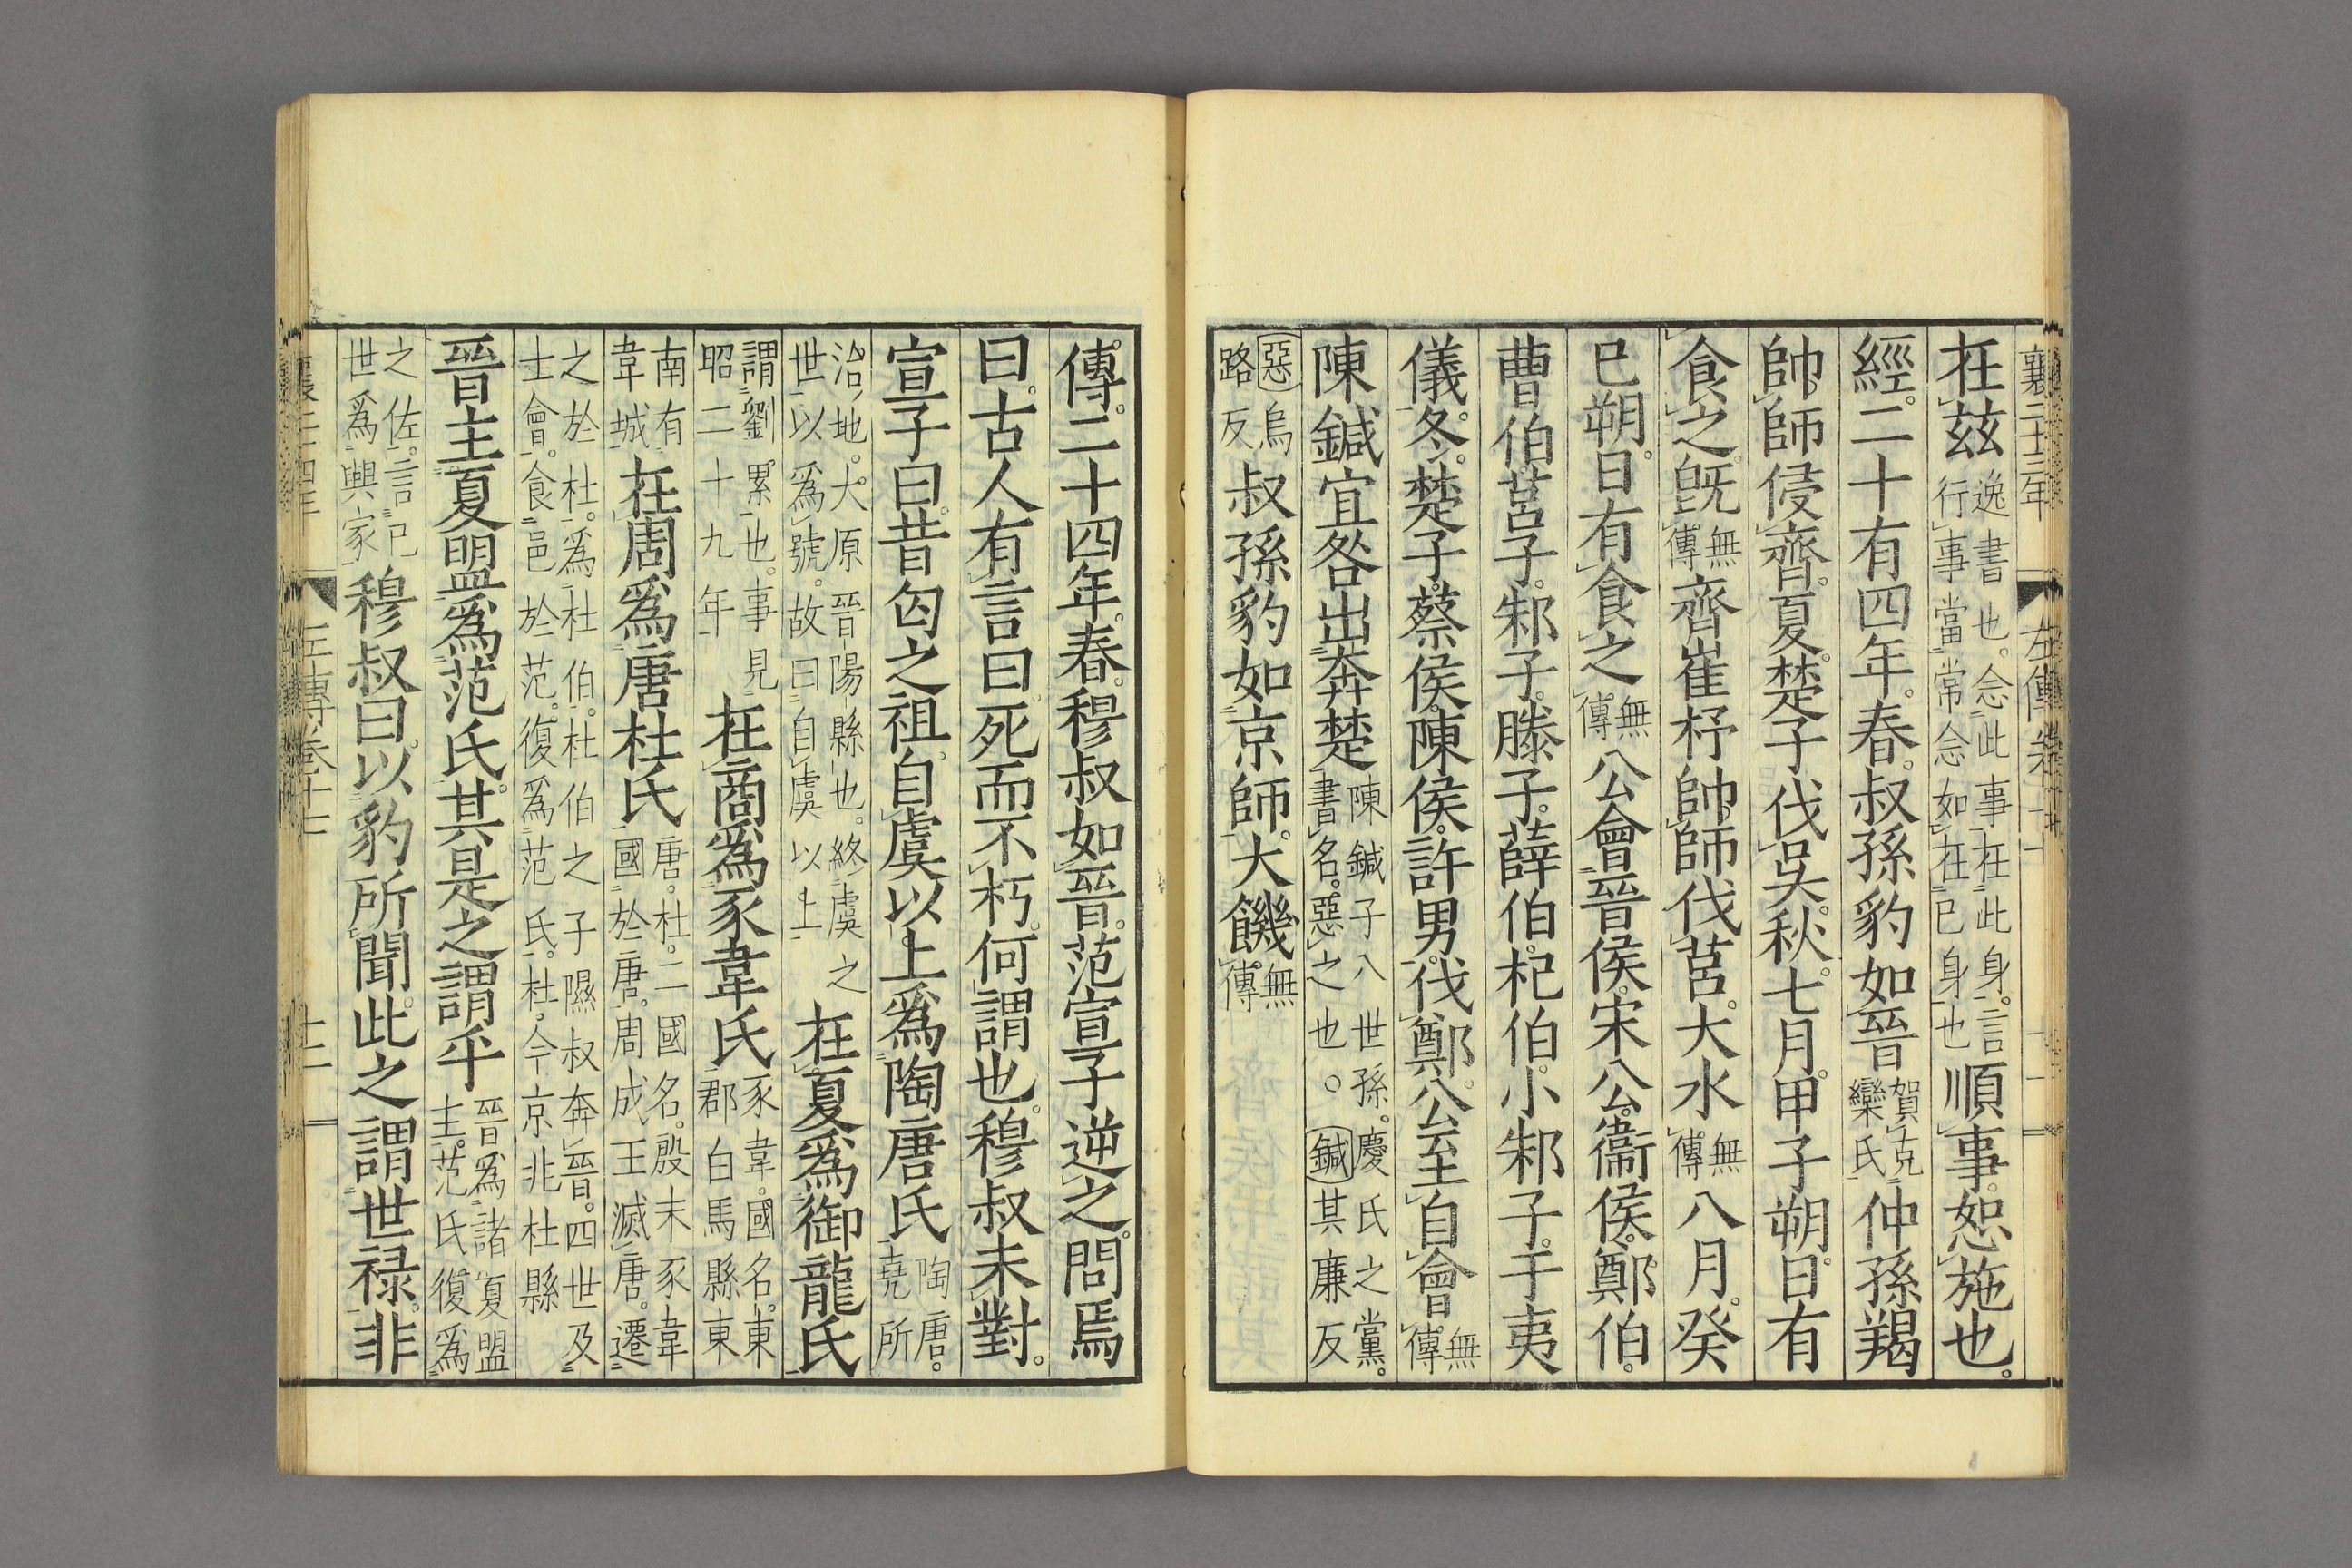 襄二十三年 左傳卷
在茲逸書也。念此事在此身。言行事當常念如在己身也順事。恕施也。
經。二十有四年。春。叔孫豹如晉賀克欒氏仲孫羯
帥師侵齊。夏。楚子伐吳。秋。七月。甲子朔。日有
食之。旣無傳齊崔杼帥師伐莒。大水無傳八月。癸
巳朔。日有食之無傳公會晉侯。宋公。衞侯。鄭伯。
曹伯。莒子。邾子。滕子。薛伯。杞伯。小邾子。于夷
儀。冬。楚子。蔡侯。陳侯。許男。伐鄭。公至自會無傳
陳鍼宜咎出奔楚陳鍼子八世孫。慶氏之黨。書名。惡之也。○鍼其廉反
惡烏路反叔孫豹如京師。大饑無傳
傳。二十四年。春。穆叔如晉。范宣子逆之。問焉
曰。古人有言曰。死而不朽。何謂也。穆叔未對。
宣子曰。昔匄之祖。自虞以上爲陶唐氏陶唐。堯所
治地。大原晉陽縣也。終虞之世以爲號。故曰自虞以上在夏爲御龍氏
謂劉累也。事見昭二十九年在商爲豕韋氏豕韋。國名。東郡白馬縣東
南有韋城在周爲唐杜氏唐。杜。二國名。殷末豕韋國於唐。周成王滅唐。遷
之於杜。爲杜伯。杜伯之子隰叔奔晉。四世及士會。食邑於范。復爲范氏。杜。今京兆杜縣
晉主夏盟爲范氏。其是之謂乎晉爲諸夏盟主。范氏復爲
之佐。言己世爲興家穆叔曰。以豹所聞。此之謂世禄。非
襄二十四年 左傳卷十七 十二